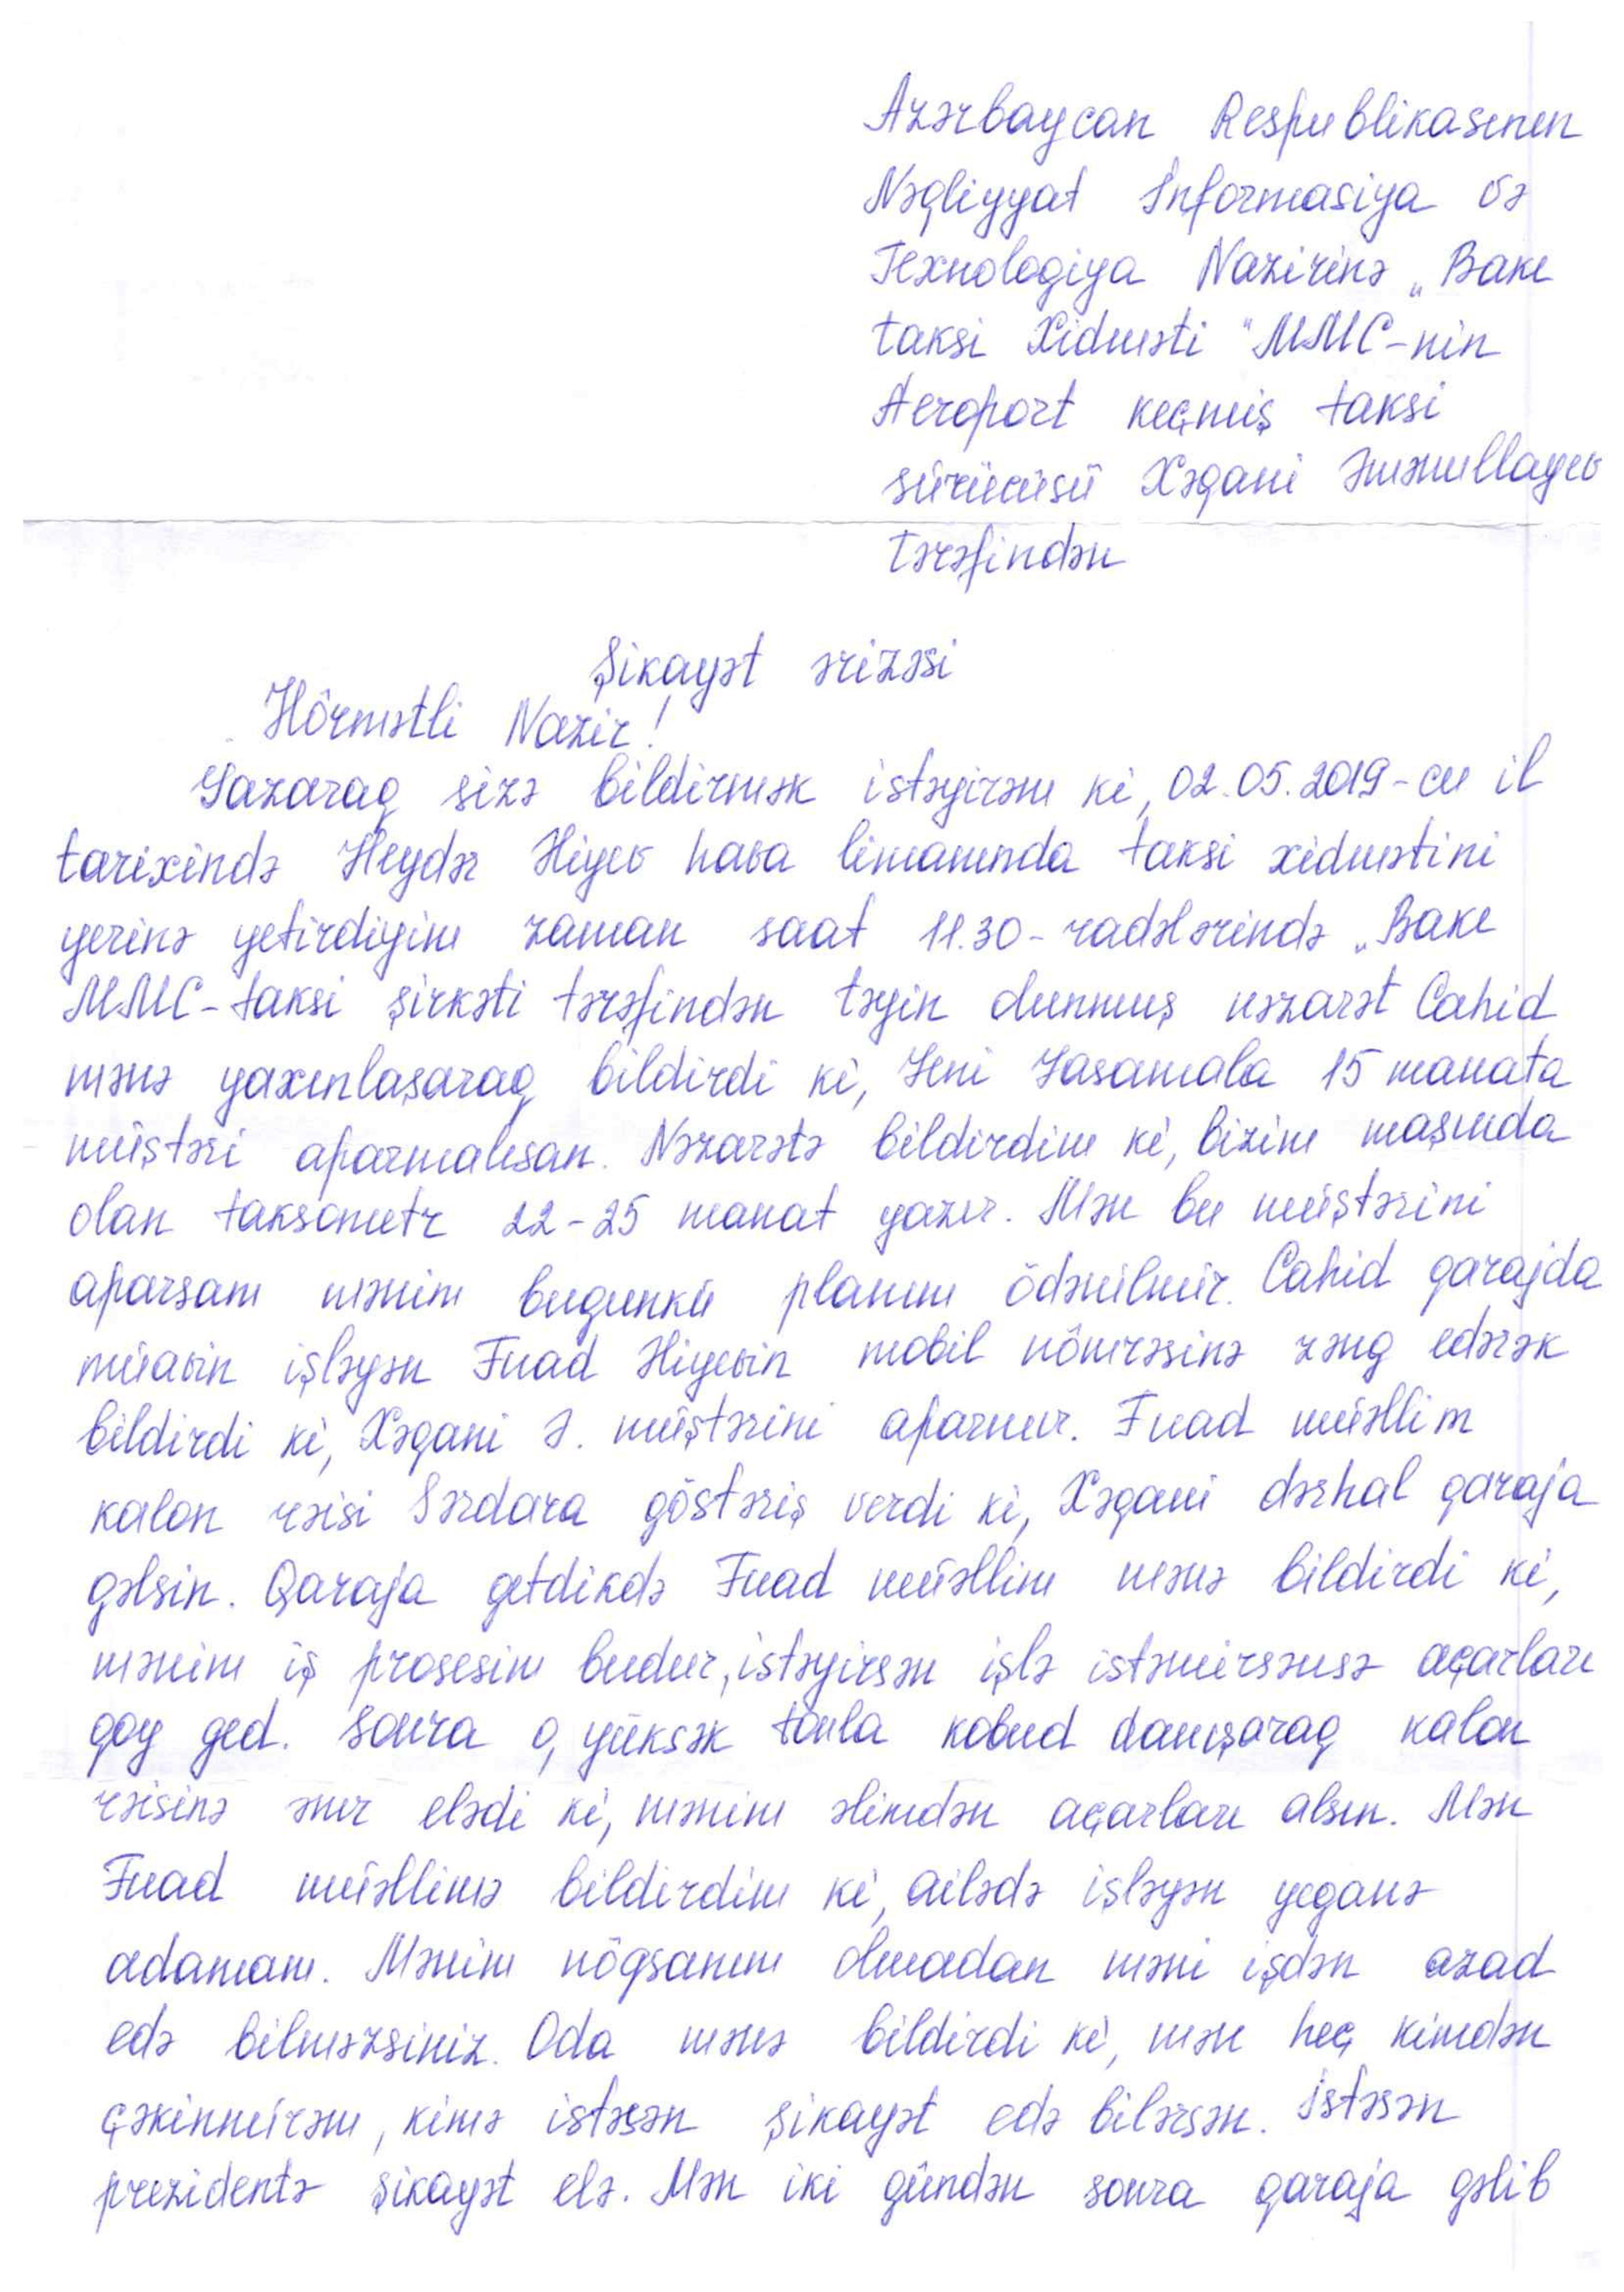 Azərbaycan Respublikasının
Nəqliyyat İnformasiya və
Texnologiya Nazirinə „Bakı
taksi Xidməti “MMC-nin
Aeroport keçmiş taksi
sürücüsü Xəqani Əmənullayev
tərəfindən
Şikayət ərizəsi
Hörmətli Nazir!
Yazaraq sizə bildirmək istəyirəm ki, 02.05.2019-cu il
tarixində Heydər Əliyev hava limanında taksi xidmətini
yerinə yetirdiyim zaman saat 11.30-radələrində „Bakı
MMC-taksi şirkəti tərəfindən təyin olunmuş nəzarət Cahid
mənə yaxınlaşaraq bildirdi ki, Yeni Yasamala 15 manata
müştəri aparmalısan. Nəzarətə bildirdim ki, bizim maşında
olan taksometr 22-25 manat yazır. Mən bu müştərini
aparsam mənim bugunkü planım ödənilmir. Cahid qarajda
müavin işləyən Fuad Əliyevin mobil nömrəsinə zəng edərək
bildirdi ki, Xəqani Ə. müştərini aparmır. Fuad müəllim
kalon rəisi Sərdara göstəriş verdi ki, Xəqani dərhal qaraja
gəlsin. Qaraja getdikdə Fuad müəllim mənə bildirdi ki,
mənim iş prosesim budur, istəyirsən işlə istəmirsənsə açarları
qoy ged. Sonra o, yüksək tonla kobud danışaraq kalon
rəisinə əmr elədi ki, mənim əlimdən açarları alsın. Mən
Fuad müəllimə bildirdim ki, ailədə işləyən yeganə
adamam. Mənim nöqsanım olmadan məni işdən azad
edə bilməzsiniz. Oda mənə bildirdi ki, mən heç kimdən
çəkinmirəm, kimə istəsən şikayət edə bilərsən. İstəsən
prezidentə şikayət elə. Mən iki gündən sonra qaraja gəlib